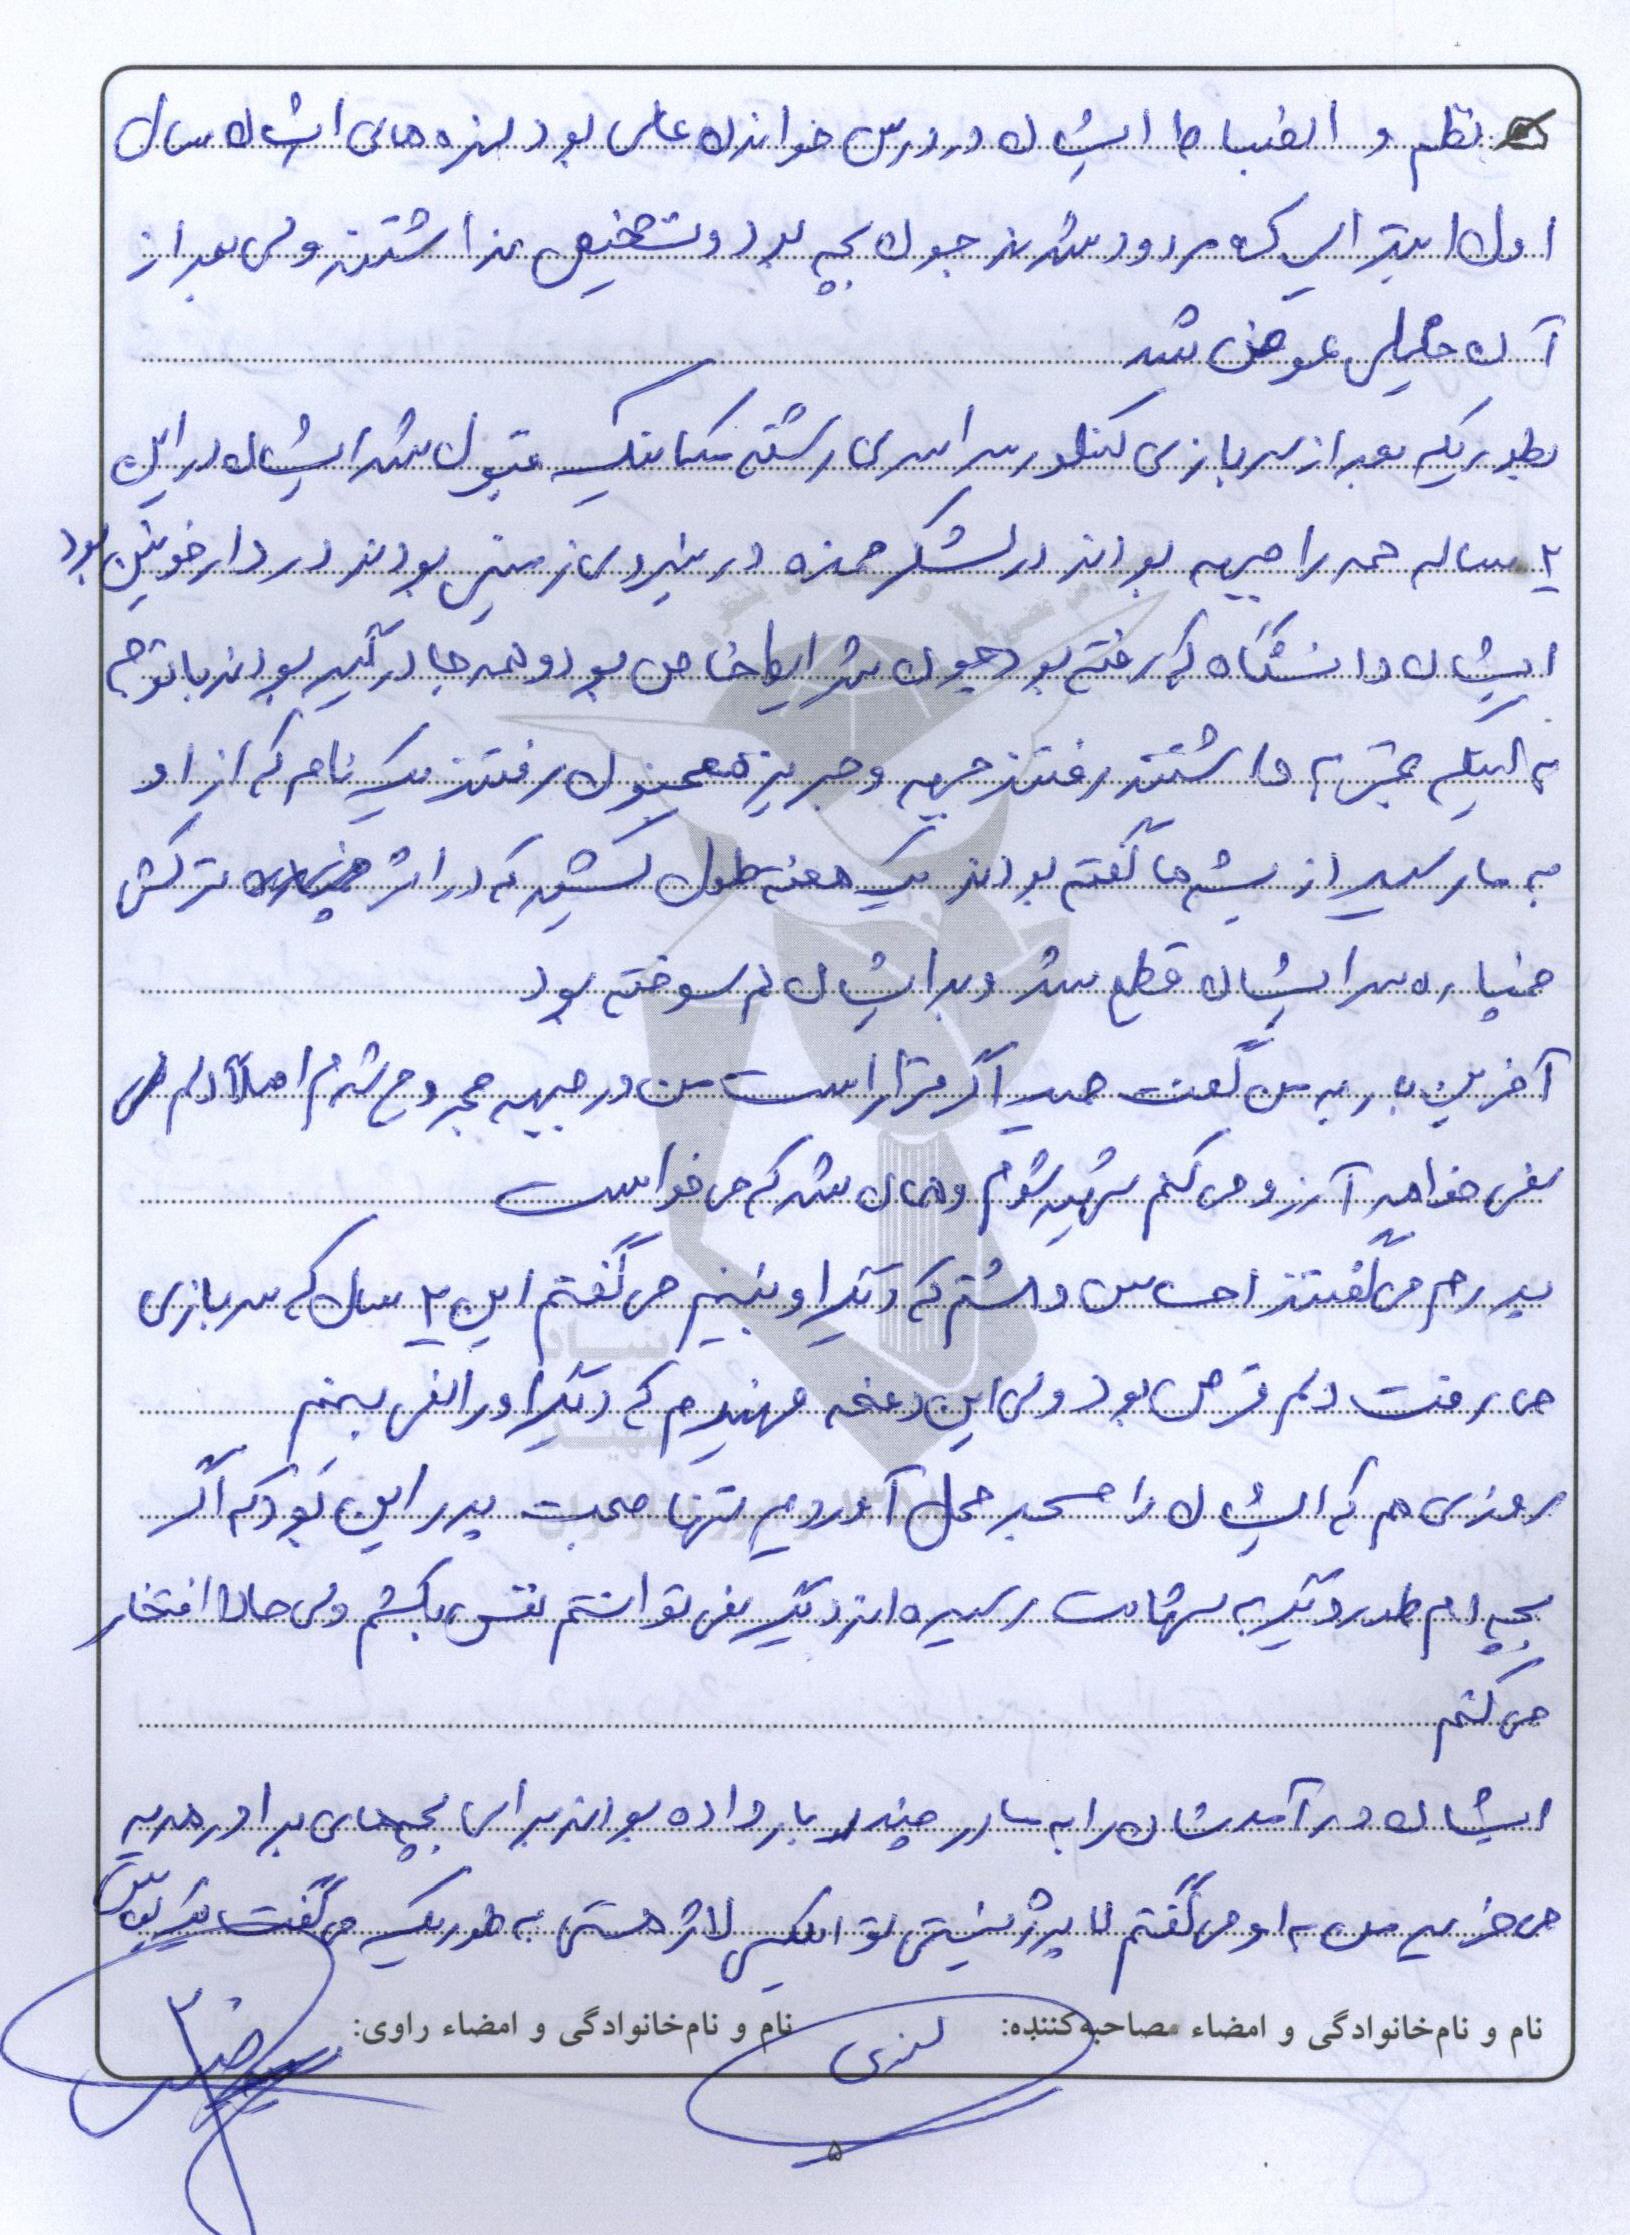 نظم و انضباط ایشان در درس خواندن عالی بود نمره های ایشان سال
اول ابتدایی که مردود شدند چون بچه بود و تشخیص نداشتند ولی بعد از
آن خیلی عوض شد
بطوریکه بعد از سربازی کنکور سراسری رشته مکانیک قبول شد ایشان در این
۲ ساله همه را جبهه بودند در لشکر حمزه در نیروی زمینی بودند در دارخوین بود
ایشان دانشگاه که رفته بود چون شرایط خاص بود و همه جا درگیر بودند با توجه
به اینکه عشق به داشتند رفتند جبهه و جزیره مجنون رفتند یک نامه که از او
به ما رسید از بیشه ها گفته بودند یک هفته طول کشید که در اثر ترکش
خمپاره سر ایشان قطع شد و بدن ایشان هم سوخته بود
آخرین بار به من گفت حمید اگر قرار است من در جبهه مجروح شوم اصلاً دلم
نمی خواهد آرزو می کنم شهید شوم و همان شد که می خواست
پدرم می گفتند احساس داشتم که دیگر او نبینم می گفتم این ۲ سال که سربازی
می رفت دلم قرص بود ولی این دفعه فهمیدم که دیگر او را نمی بینم
روزی هم که ایشان را مسجد محل آوردیم تنها صحبت پدر این بود که اگر
بچه ام طور دیگر به شهادت رسیده اند دیگر نمی توانستم نفس بکشم ولی حالا افتخار
می کنم
ایشان درآمدشان را به مادر چند بار داده بودند برای بچه های برادر هدیه
می خرید من به او می گفتم لاپرژ نیستی تو ایکس لارژ هستی به طوریکه می گفت
نام و نام‌خانوادگی و امضاء مصاحبه‌کننده:
نام و نام‌خانوادگی و امضاء راوی:
۵